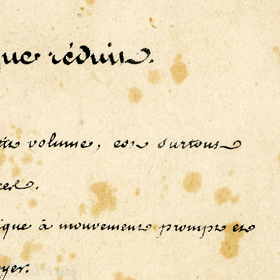 que réduit.
volume, est surtout
ique à mouvement prompt et
yer.